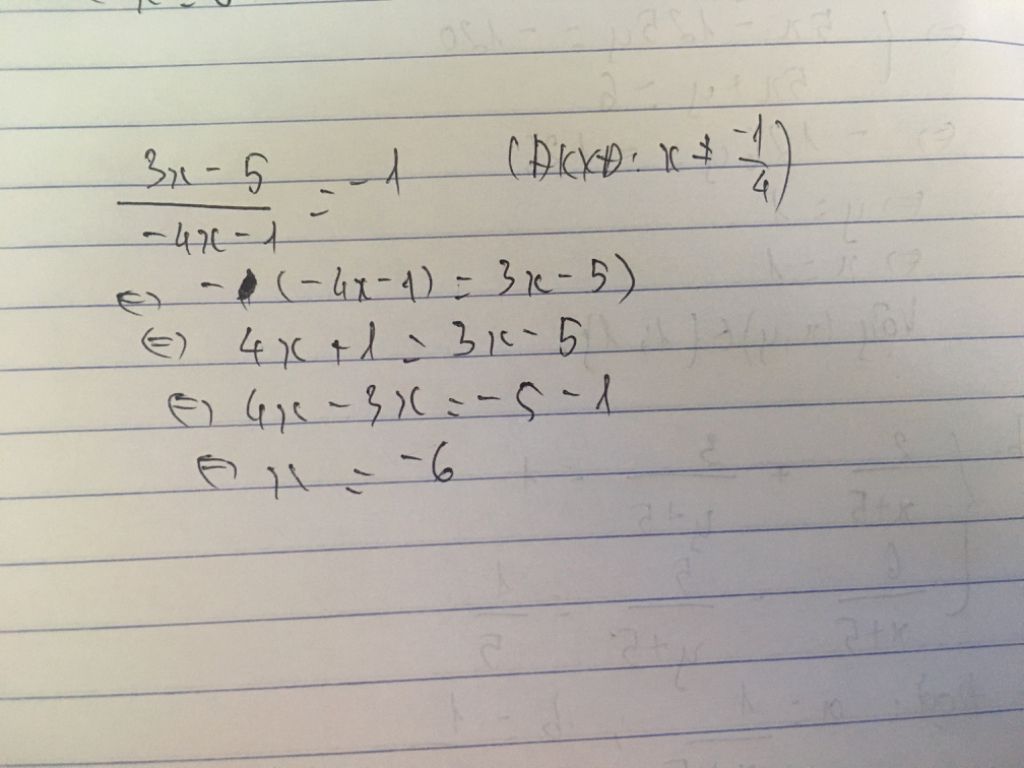 \frac{3x-5}{-4x-1} = -1 (ĐKXĐ: x ≠ \frac{-1}{4})
⇔ -(-4x-1) = 3x-5)
⇔ 4x+1 = 3x-5
⇔ 4x-3x = -5-1
⇔ x = -6